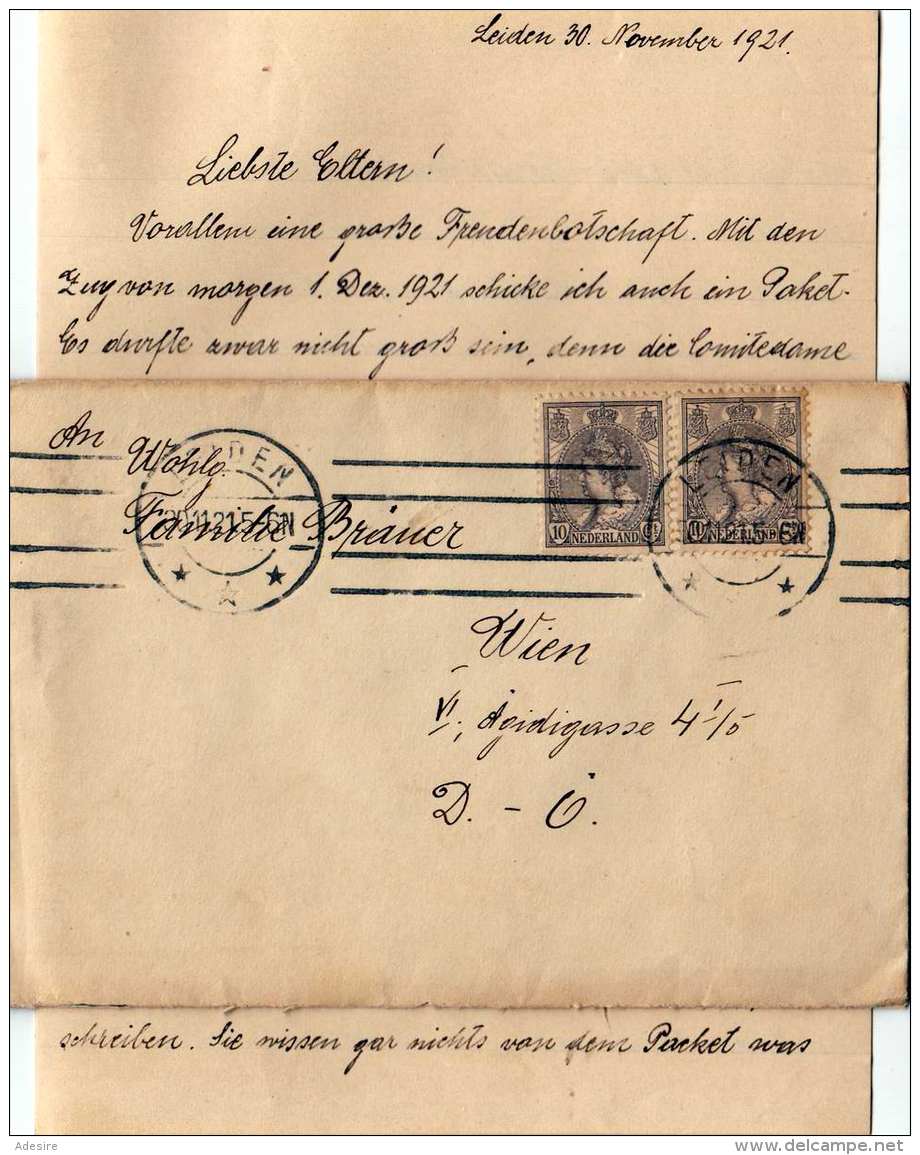 Leiden 30. November 1921.
Liebste Eltern!
Vorallem eine große Freudenbotschaft. Mit den
Zug von morgen 1. Dez. 1921 schicke ich auch ein Paket.
Es durfte zwar nicht groß sein, denn die Comitedame
An
Wohlg.
Familie Bräuer
LEIDEN
30.11.21.5-6N
10 Ct
NEDERLAND
10 Ct
NEDERLAND
LEIDEN
Wien
VI, Ägidigasse 4 I/5
D. - Ö.
schreiben. Sie wissen gar nichts von dem Packet was
Adesire
www.delcampe.net